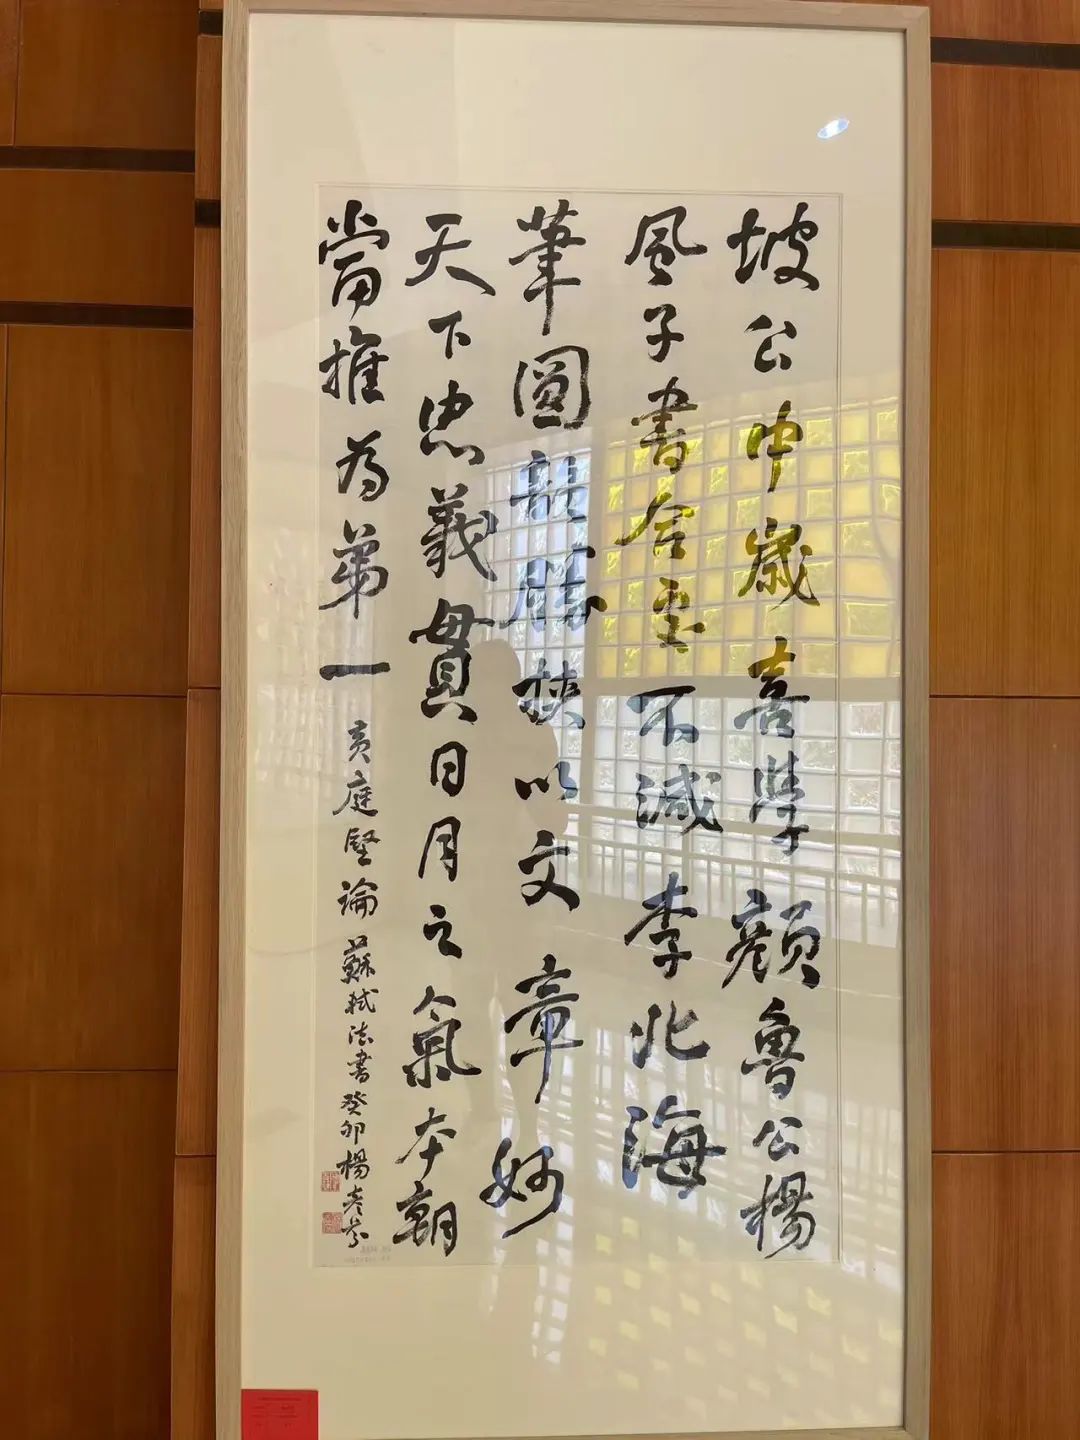 坡公中歲喜學顏魯公楊
風子書合處不減李北海
筆圓韻勝挾以文章妙
天下忠義貫日月之氣本朝
當推為第一
黃庭堅論蘇軾法書癸卯楊彥芬